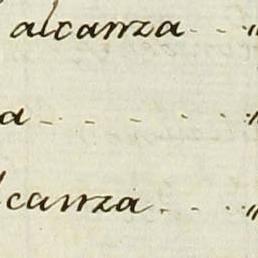 alcanza - - "
a - - - - - "
lcanza - - - "